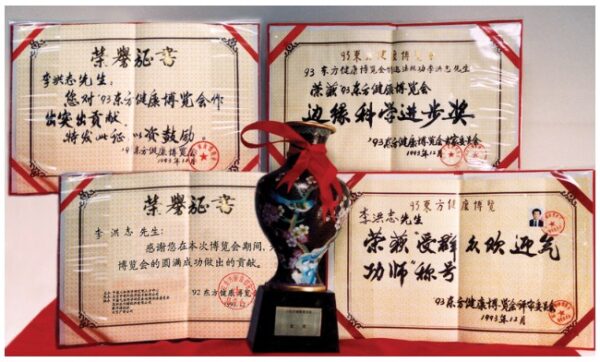 荣誉证书
李洪志先生:
您对'93东方健康博览会作
出突出贡献
特发此证 以资鼓励。
'93东方健康博览会
1993年12月
93東方健康博览会
93东方健康博览会 法轮功李洪志先生
荣获'93东方健康博览会
边缘科学进步奖
'93东方健康博览会评审委员会
1993年12月
荣誉证书
李洪志先生:
感谢您在本次博览会期间,
博览会的圆满成功做出的贡献。
'92东方健康博览
93東方健康博览
李洪志先生
荣获“受群众欢迎气
功师”称号
'93东方健康博览会评审委员会
1993年12月